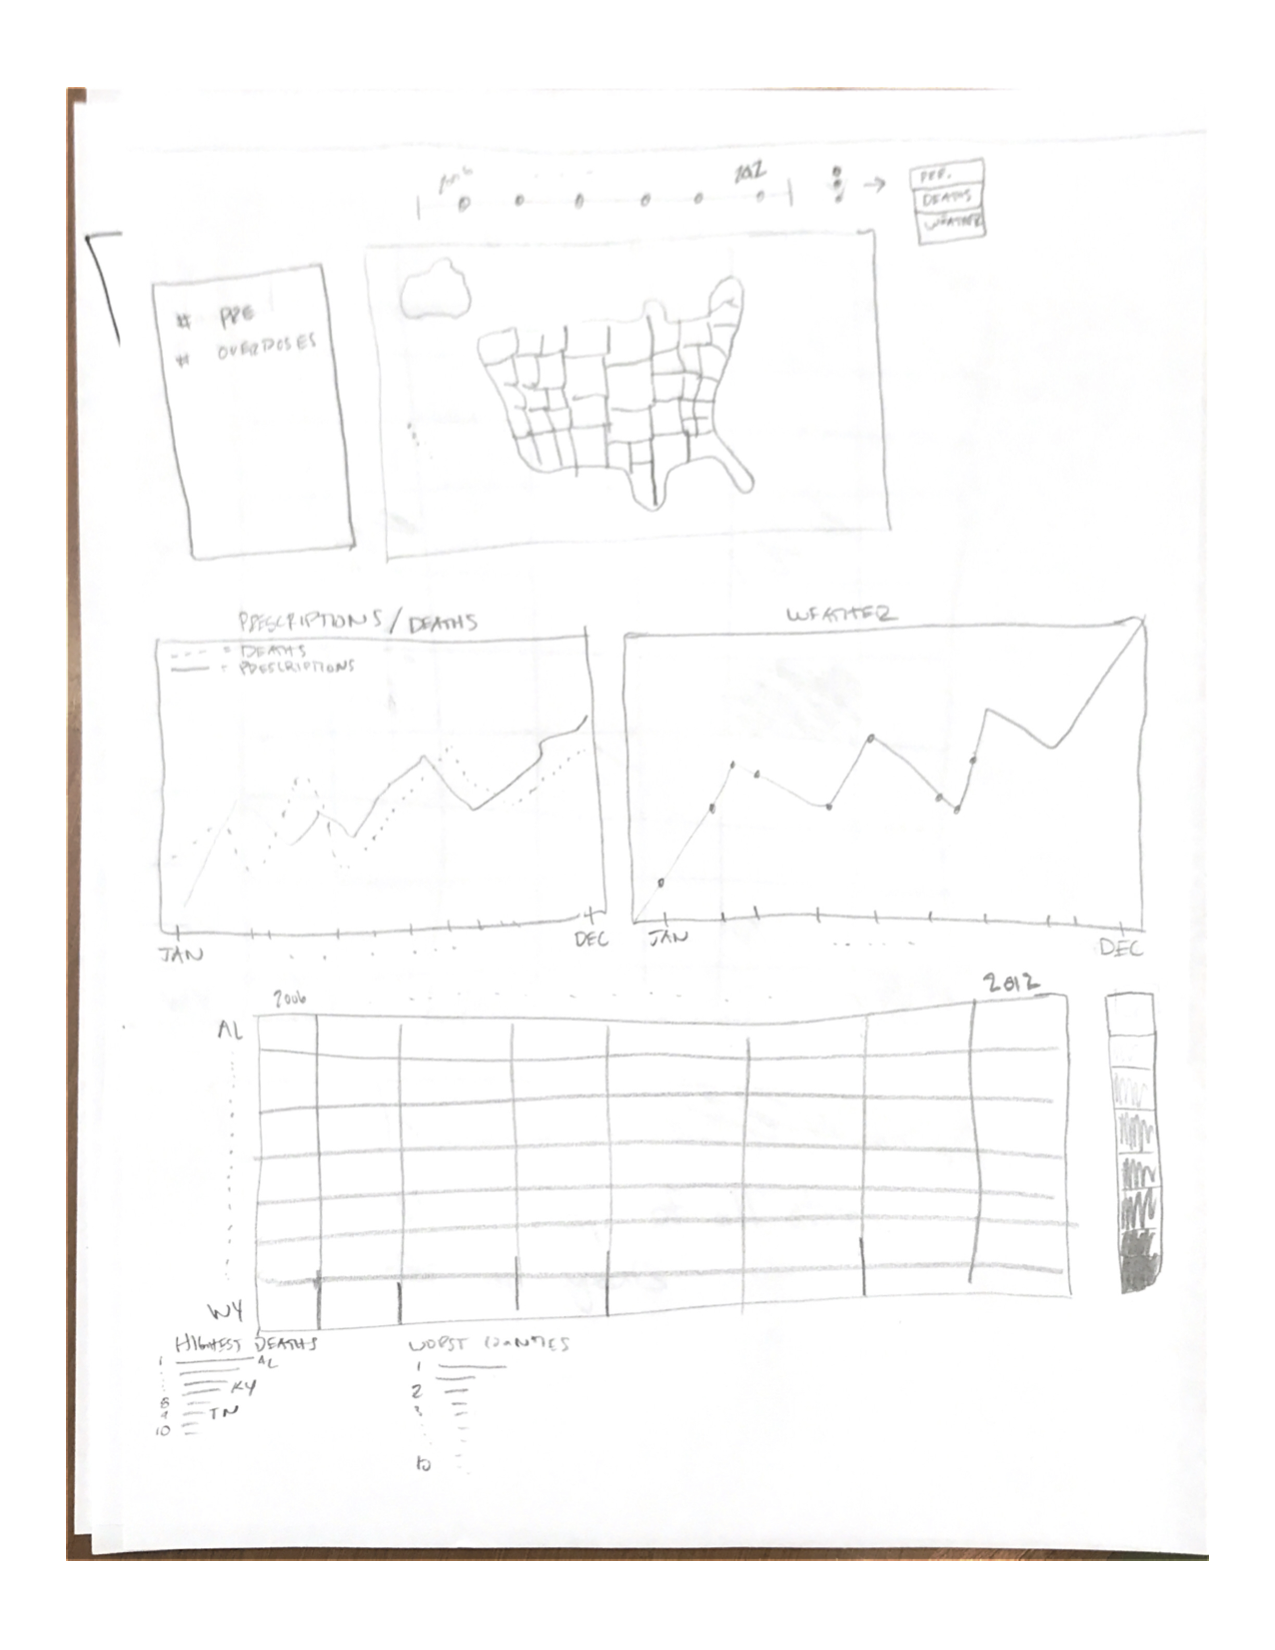 2012
PRE.
DEATHS
WEATHER
# PRE
# OVERDOSES
PRESCRIPTIONS / DEATHS
--- = DEATHS
— = PRESCRIPTIONS
JAN
DEC
WEATHER
JAN
DEC
2006
2012
AL
WY
HIGHEST DEATHS
1 AL
KY
8
9 TN
10
WORST COUNTIES
1
2
3
10